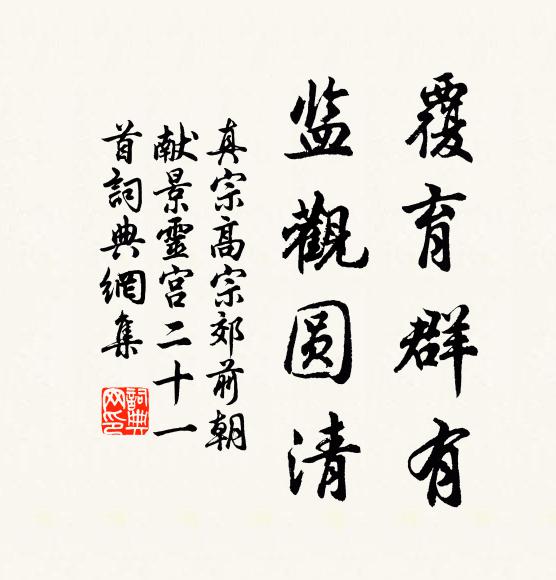 覆育群有
监觀圆清
真宗高宗郊前朝
献景靈宫二十一
首詞典網集
詞典網印